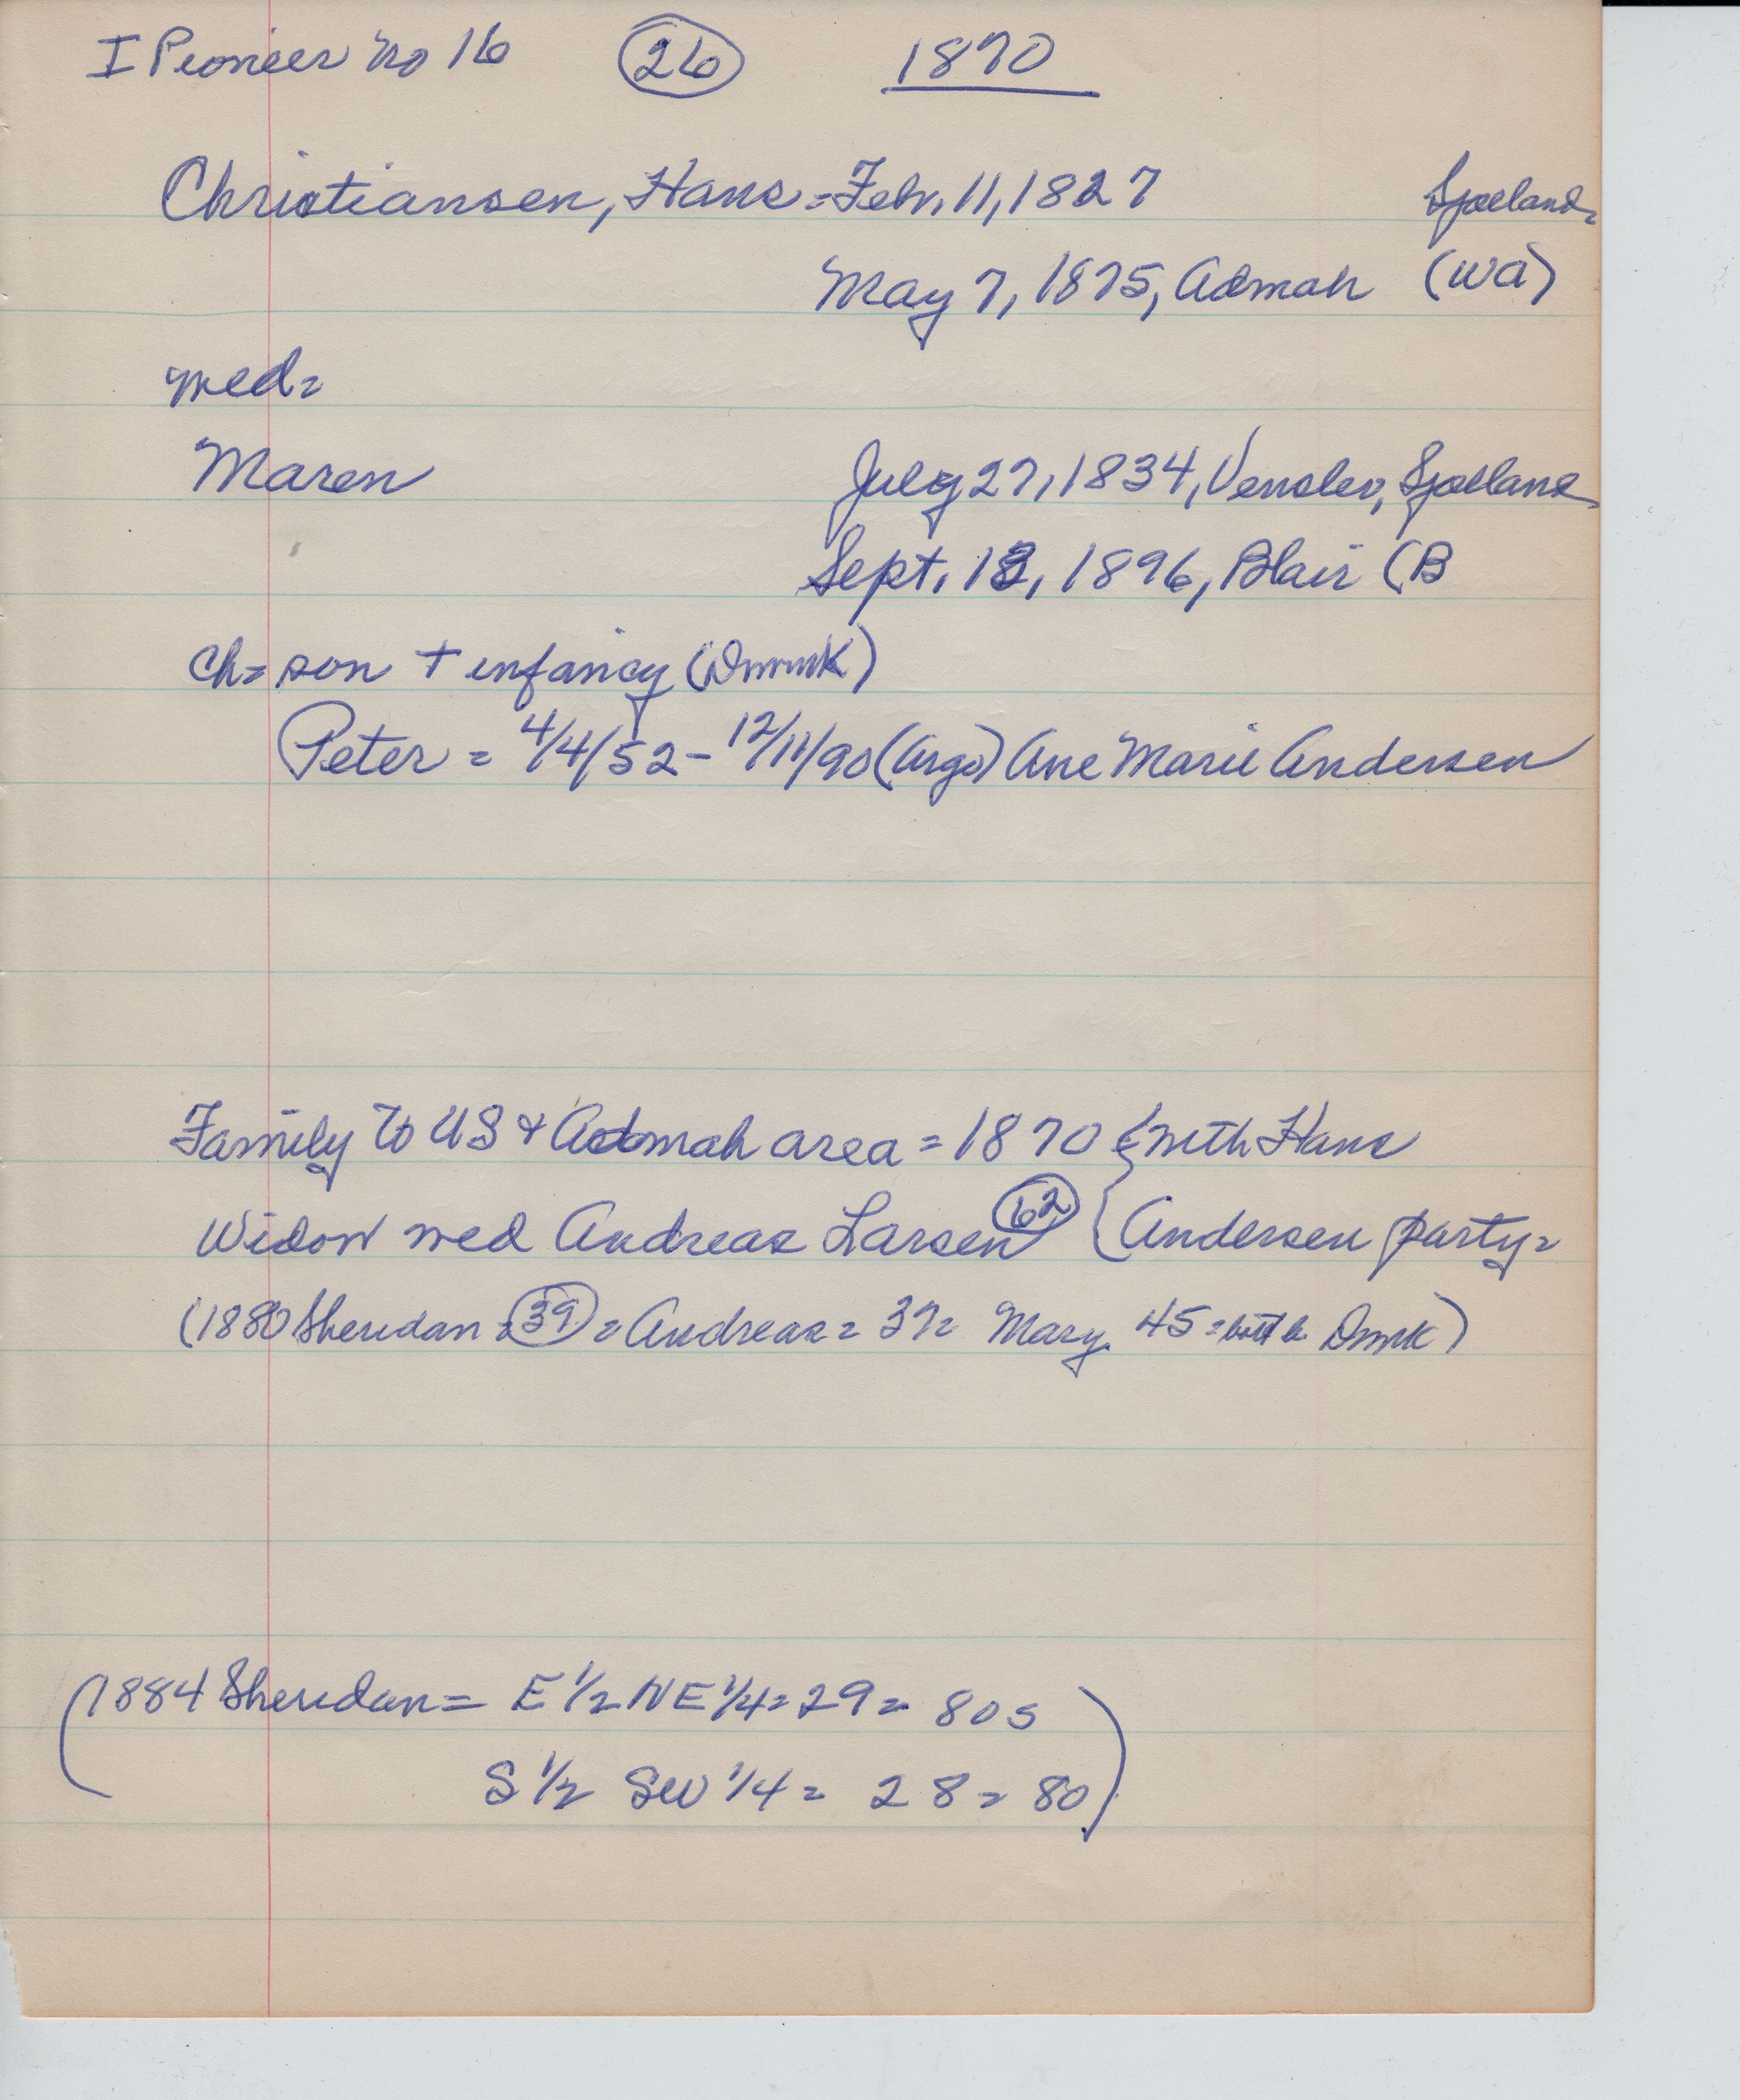 I Pioneer no 16 (26) 1870
Christiansen, Hans = Febr. 11, 1827 Sjælland=
May 7, 1875, Admah (WA)
med=
Maren July 27, 1834, Venslev, Sjælland
Sept. 13, 1896, Blair (B
Ch= son + infancy (Dnmk)
Peter = 4/4/52 - 12/11/90 (Argo) Ane Marie Andersen
Family to US & Admah area = 1870 { with Hans
Widow med Andreas Larsen (62) { Andersen party=
(1880 Sheridan = (39) = Andreas = 37= Mary. 45 = both b Dnmk)
(1884 Sheridan = E 1/2 NE 1/4 = 29 = 80s
S 1/2 SW 1/4 = 28 = 80)